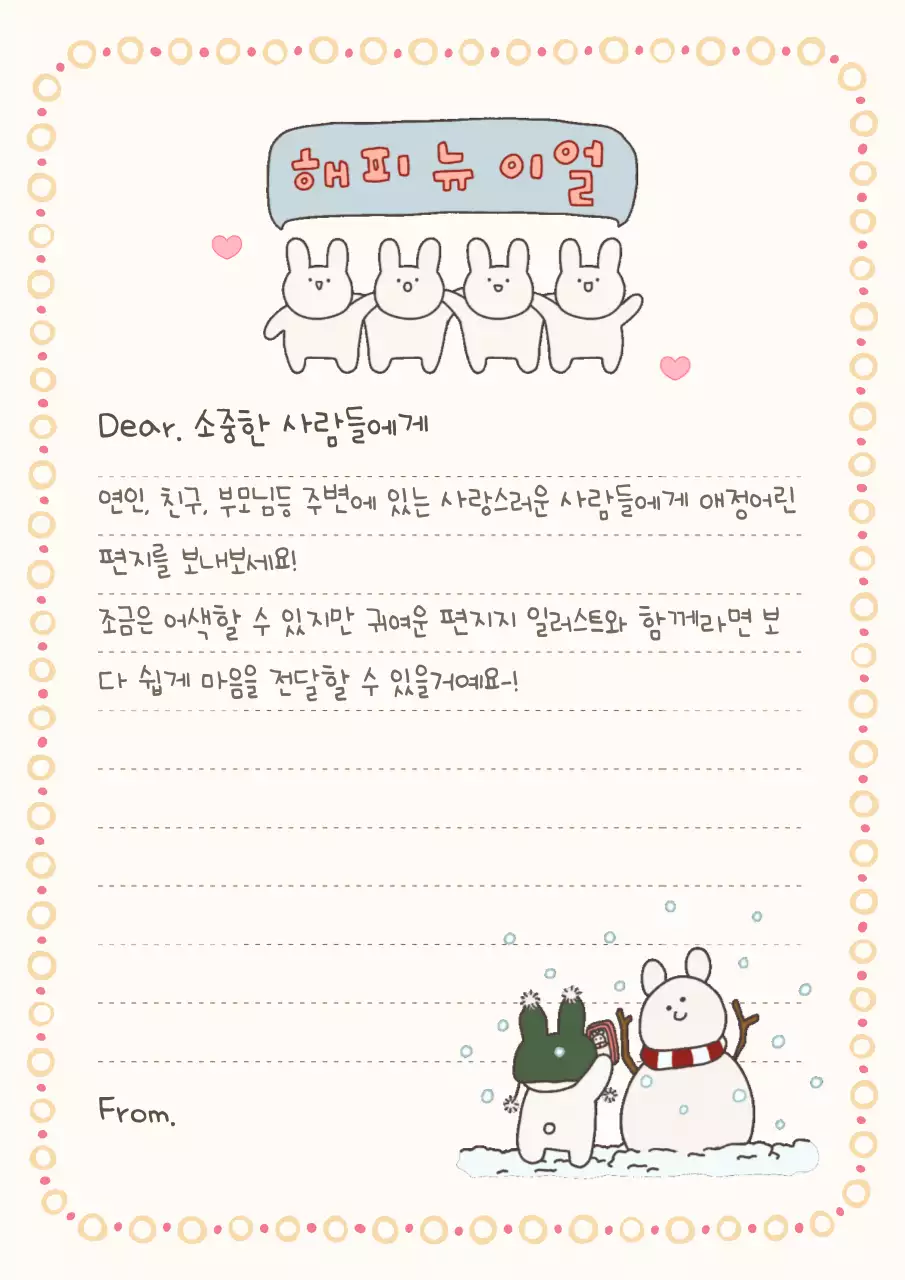 해피 뉴 이얼
Dear. 소중한 사람들에게
연인, 친구, 부모님등 주변에 있는 사랑스러운 사람들에게 애정어린
편지를 보내보세요!
조금은 어색할 수 있지만 귀여운 편지지 일러스트와 함께라면 보
다 쉽게 마음을 전달할 수 있을거예요~!
From.